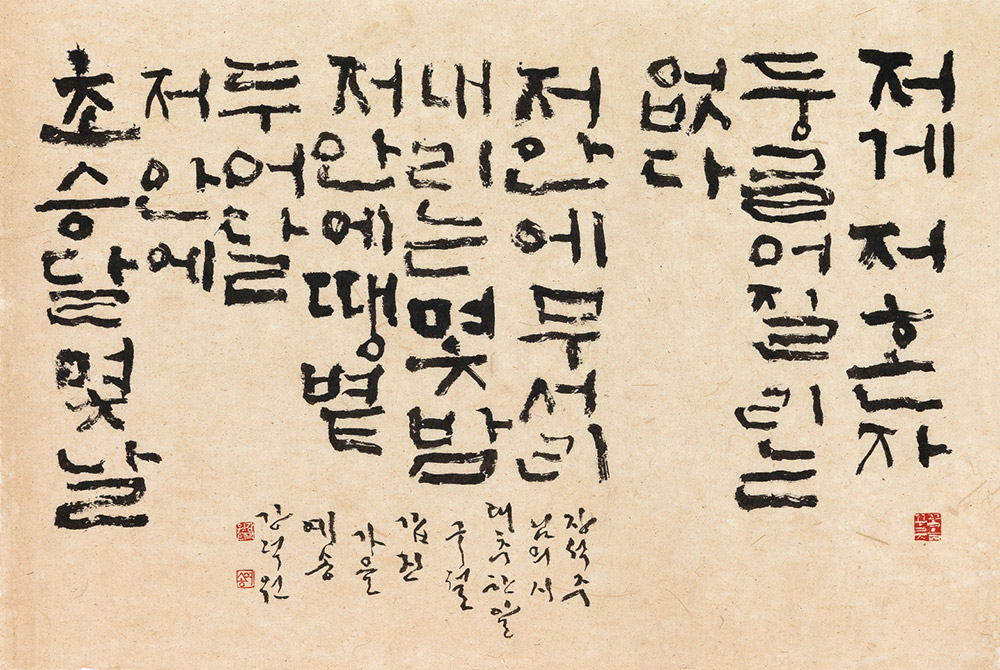 저게 저 혼자
둥글어질 리는
없다
저 안에 무서리
내리는 몇 밤
저 안에 땡볕
두어 달
저 안에
초승달 몇 날
장석주
님의 시
대추 한 알
구절
갑진
가을
예송
강덕원